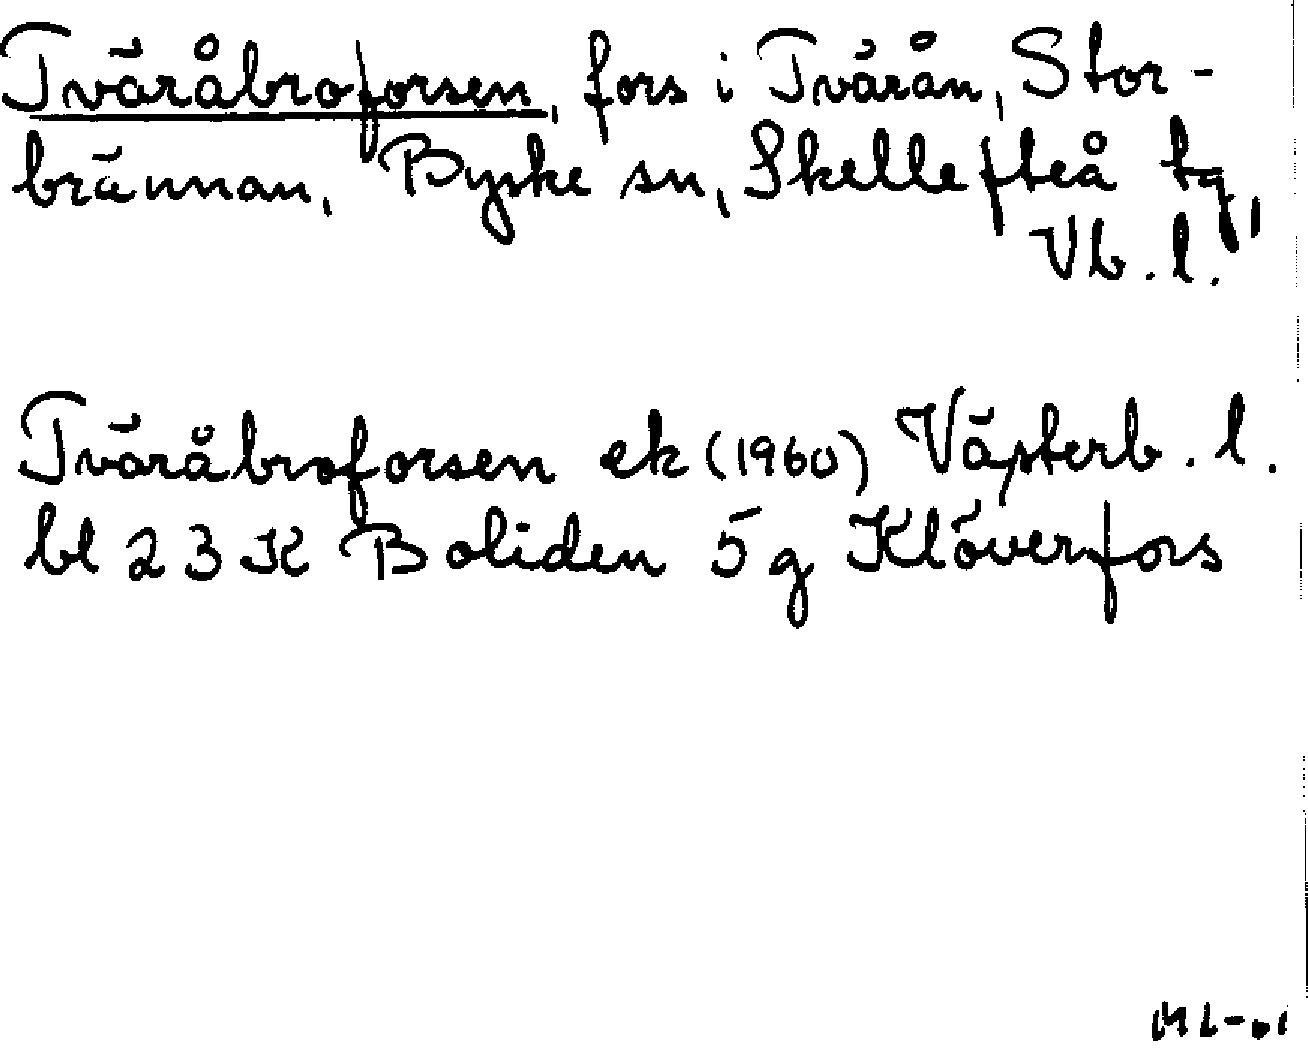 Tväråbroforsen, fors i Tvärån, Stor-
brännan, Byske sn, Skellefteå tg,
Vb. l.
Tväråbroforsen ek (1960) Västerb. l.
bl 23 K Boliden 5 g Klöverfors